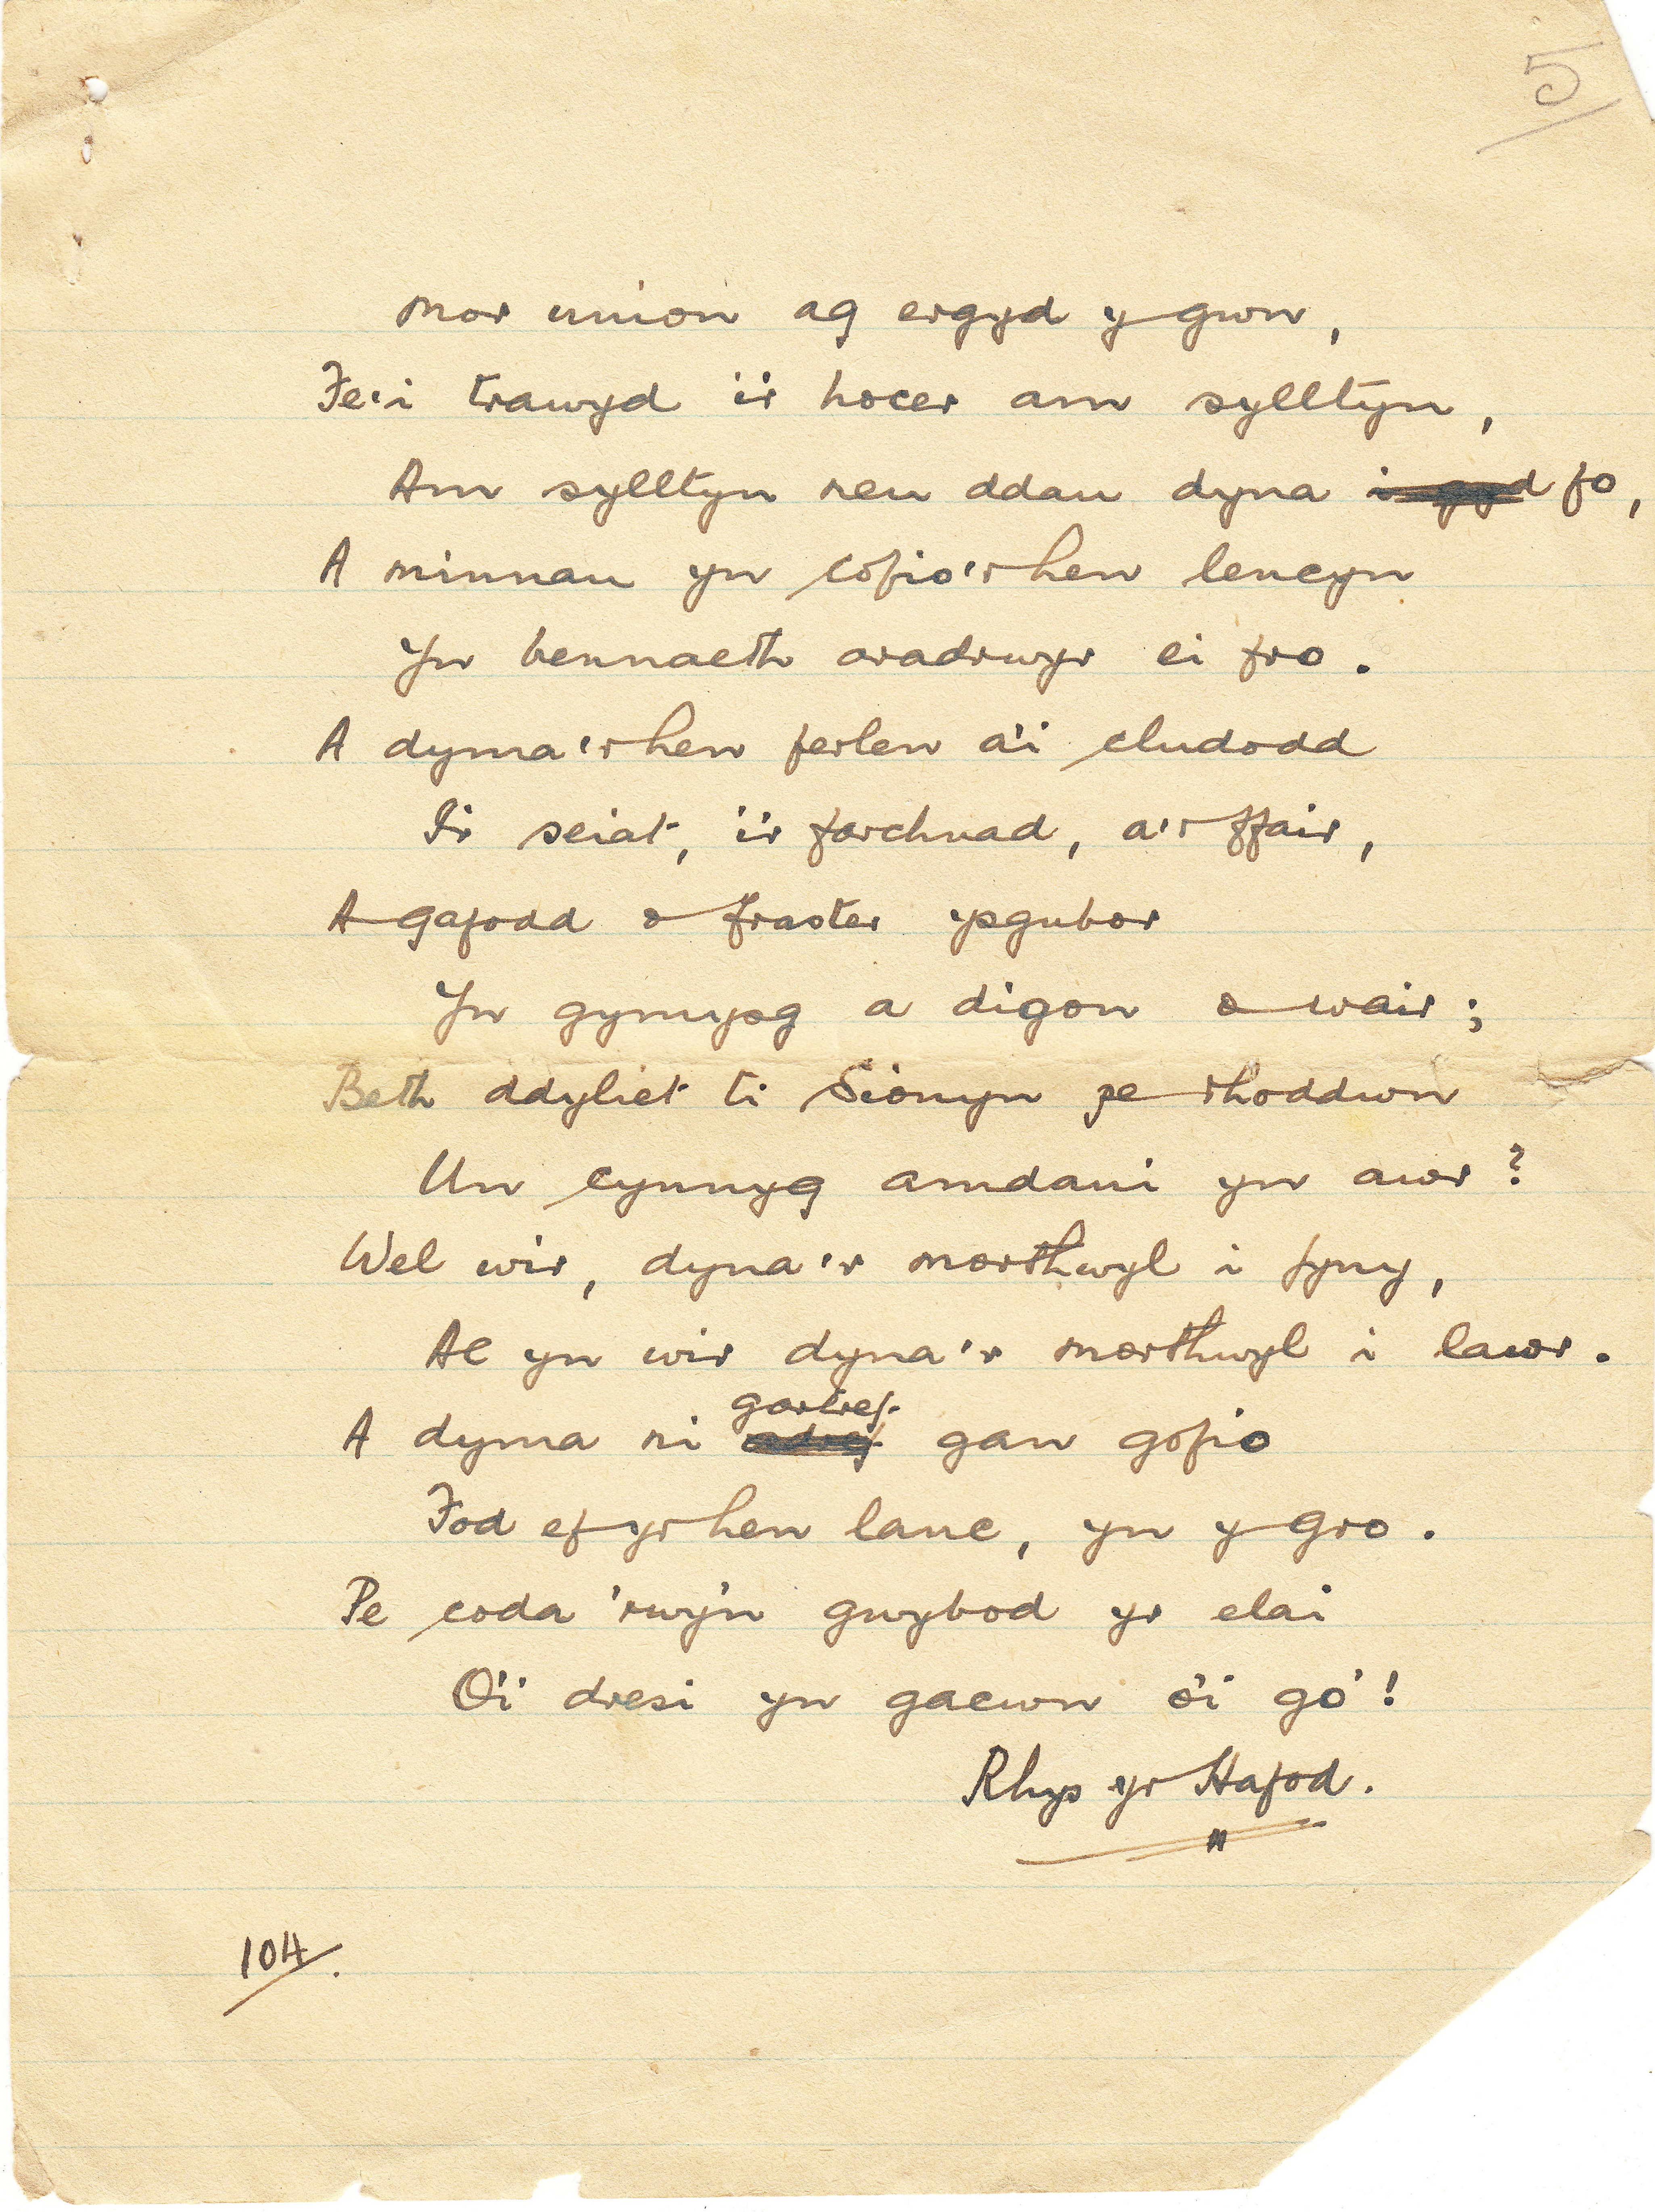 5
Mor union ag ergyd y gwn,
Fe'i trawyd i'r hocer am sylltyn,
Am sylltyn neu ddau dyna i gyd fo,
A minnau yn cofio'r hen lencyn
Yn bennaeth aradrwyr ei fro.
A dyma'r hen ferlen a'i cludodd
I'r seiat, i'r farchnad, a'r ffair,
A gafodd o fraster ysgubor
Yn gymysg a digon o wair;
Beth ddyliet ti Sionyn pe rhoddwn
Un cynnyg amdani yn awr?
Wel wir, dyna'r morthwyl i fyny,
Ac yn wir dyna'r morthwyl i lawr.
gartref
A dyma ni adref gan gofio
Fod ef yr hen lanc, yn y gro.
Pe coda 'rwy'n gwybod yr elai
O'i dresi yn gacwn o'i go'!
Rhys yr Hafod.
"
104.